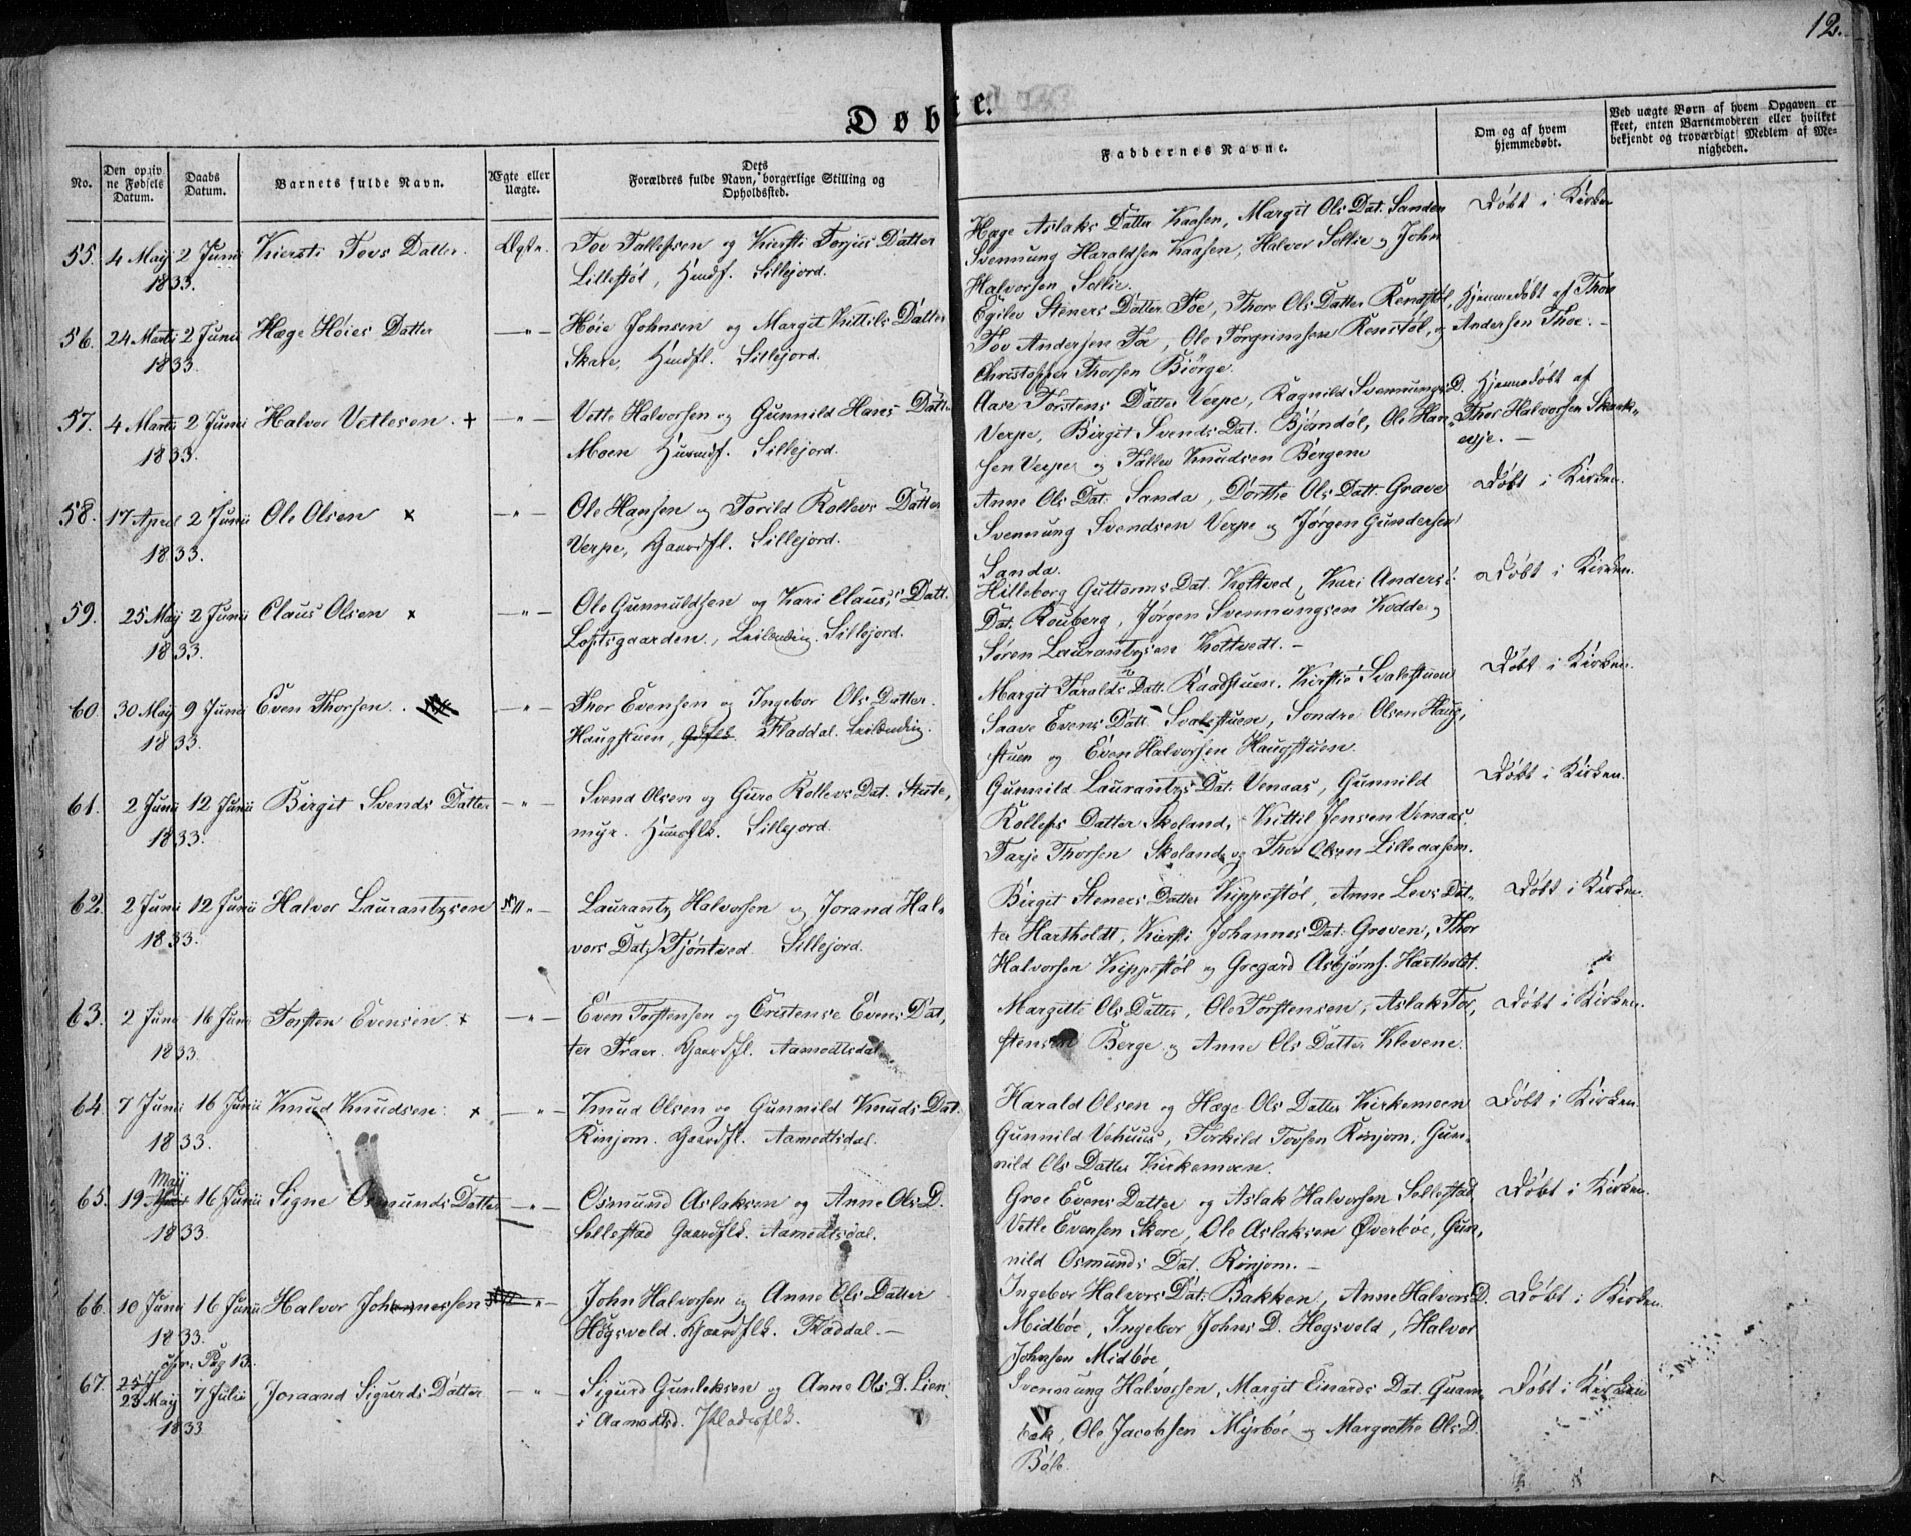 12.
Døbte.
No.
Den opgiv
ne Fødsels
Datum.
Daabs
Datum.
Barnets fulde Navn.
Ægte eller
Uægte.
Dets
Forældres fulde Navn, borgerlige Stilling og
Opholdssted.
Faddernes Navne.
Om og af hvem
hjemmedøbt.
Ved uægte Børn af hvem Opgaven er
skeet, enten Barnemoderen eller hvilket
bekjendt og troværdigt Medlem af Me-
nigheden.
55. 4 May 2 Junii Kiersti Tovs Datter. Ægte.
1833.
Tov Tallefsen og Kiersti Torjus Datter
Lillestøl, Huusf. Sillejord.
Hæge Aslaks Datter Kaasen, Margit Ols Dat. Sanden
Svennung Haraldsen Kaasen, Halvor Sollie og John
Halvorsen Sollie.
Døbt i Kirken
56. 24 Marti 2 Junii Hæge Høies Datter —"—
1833.
Høie Johnsen og Margit Kittils Datter
Skare, Huusfl. Sillejord.
Egilev Steners Datter Toe, Thore Ols Datter Renstøl,
Tov Andersen Toe, Ole Torgrimsen Renstøl, og
Christopher Thorsen Biörge.
Hjemmedøbt af Thov
Andersen Thoe. —
57. 4 Marti 2 Junii Halvor Vetlesen. + —"—
1833.
Vetle Halvorsen og Gunnild Hans Datter
Moen Huusmf. Sillejord.
Aase Torstens Datter Verpe, Ragnild Svennungs D.
Verpe, Birgit Svends Dat. Bjørndal, Ole Han-
sen Verpe og Tallev Knudsen Bergene
Hjemmedøbt af
Thor Halvorsen Skark-
eeje. —
58. 17 April 2 Junii Ole Olsen x —"—
1833.
Ole Hansen og Torild Rollevs Datter
Verpe, Gaardfl. Sillejord.
Anne Ols Dat. Sanda, Dorthe Ols Datt. Grave
Svennung Svendsen Verpe og Jørgen Gundersen
Sanda.
Døbt i Kirken.
59. 25 May 2 Junii Claus Olsen x —"—
1833.
Ole Gunnuldsen og Kari Claus's Datt.
Loftsgaarden, Leilænding Sillejord.
Hilleborg Guttorms Dat. Kottved, Kari Anders's
Dat. Rouberg, Jørgen Svennungsen Kodde og
Søren Laurantzsen Kottvedt. —
Døbt i Kirken.
60. 30 May 9 Junii Even Thorsen. —"—
1833.
Thor Evensen og Ingebor Ols Datter.
Haugstuen, Fladdal. Leilænding.
Margit Taralds Datt. Raadstuen. Kirstie Svalestuen
Saave Evens Datt. Svalestuen, Sondre Olsen Haug,
stuen og Even Halvorsen Haugstuen.
Døbt i Kirken.
61. 2 Junii 12 Junii Birgit Svends Datter —"—
1833.
Svend Olsen og Guro Rollevs Dat. Stute,
myr. Huusflk. Sillejord.
Gunnild Laurantzs Dat. Venaas, Gunnild
Rollefs Datter Skoland, Kittil Jensen Venaas.
Tarje Thorsen Skoland og Thov Olsen Lilleaasem.
Døbt i Kirken.
62. 2 Junii 12 Junii Halvor Laurantzsen "—
1833.
Laurantz Halvorsen og Jorand Hal-
vors Dat. Tjöntved Sillejord.
Birgit Steners Datter Kippestøl, Anne Levs Dat-
ter Hartholdt, Kiersti Johannes Dat. Groven, Thor
Halvorsen Kippestøl og Gregard Asbjørns. Hartholdt.
Døbt i Kirken.
63. 2 Juni 16 Juni Torsten Evensen. x —"—
1833.
Even Torstensen og Cristense Evens Dat,
ter Traer. Gaardfl. Aamodtsdal
Margitte Ols Datter, Ole Torstensen, Aslak Tor,
stensen Berge og Anne Ols Datter Klevene.
Døbt i Kirken.
64. 7 Junii 16 Junii Knud Knudsen. x —"—
1833.
Knud Olsen og Gunnild Knuds Dat.
Rinjom. Gaardfl. Aamodtsdal.
Harald Olsen og Hæge Ols Datter Kirkemoen
Gunnild Vehuus, Torkild Tovsen Rinjom, Gun-
nild Ols Datter Kirkemoen.
Døbt i Kirken.
May
65. 19 16 Junii Signe Osmunds Datter —"—
1833.
Osmund Aslaksen og Anne Ols D.
Sellestad Gaardflk. Aamodtsdal.
Groe Evens Datter og Aslak Halvorsen Sellestad
Vetle Evensen Skore, Ole Aslaksen Øverbøe, Gun,
nild Osmunds Dat. Rinjom. —
Døbt i Kirken.
66. 10 Juni 16 Junii Halvor Johannessen "—
1833.
John Halvorsen og Anne Ols Datter
Høgsvold. Gaardflk. Fladdal. —
Ingebor Halvors Dat. Bakken, Anne Halvors D.
Midbøe, Ingebor Johns D. Hogsvold, Halvor
Johnsen Midbøe
Døbt i Kirken.
Pag 13.
67. 23 May 7 Julii Joraand Sigurds Datter —"—
1833
Sigurd Gunleksen og Anne Ols D. Lien
i Aamodtsd.
Svennung Halvorsen, Margit Einards Dat. Quam-
bæk, Ole Jacobsen Myrbøe og Margrethe Ols D.
Bøle.
Døbt i Kirken